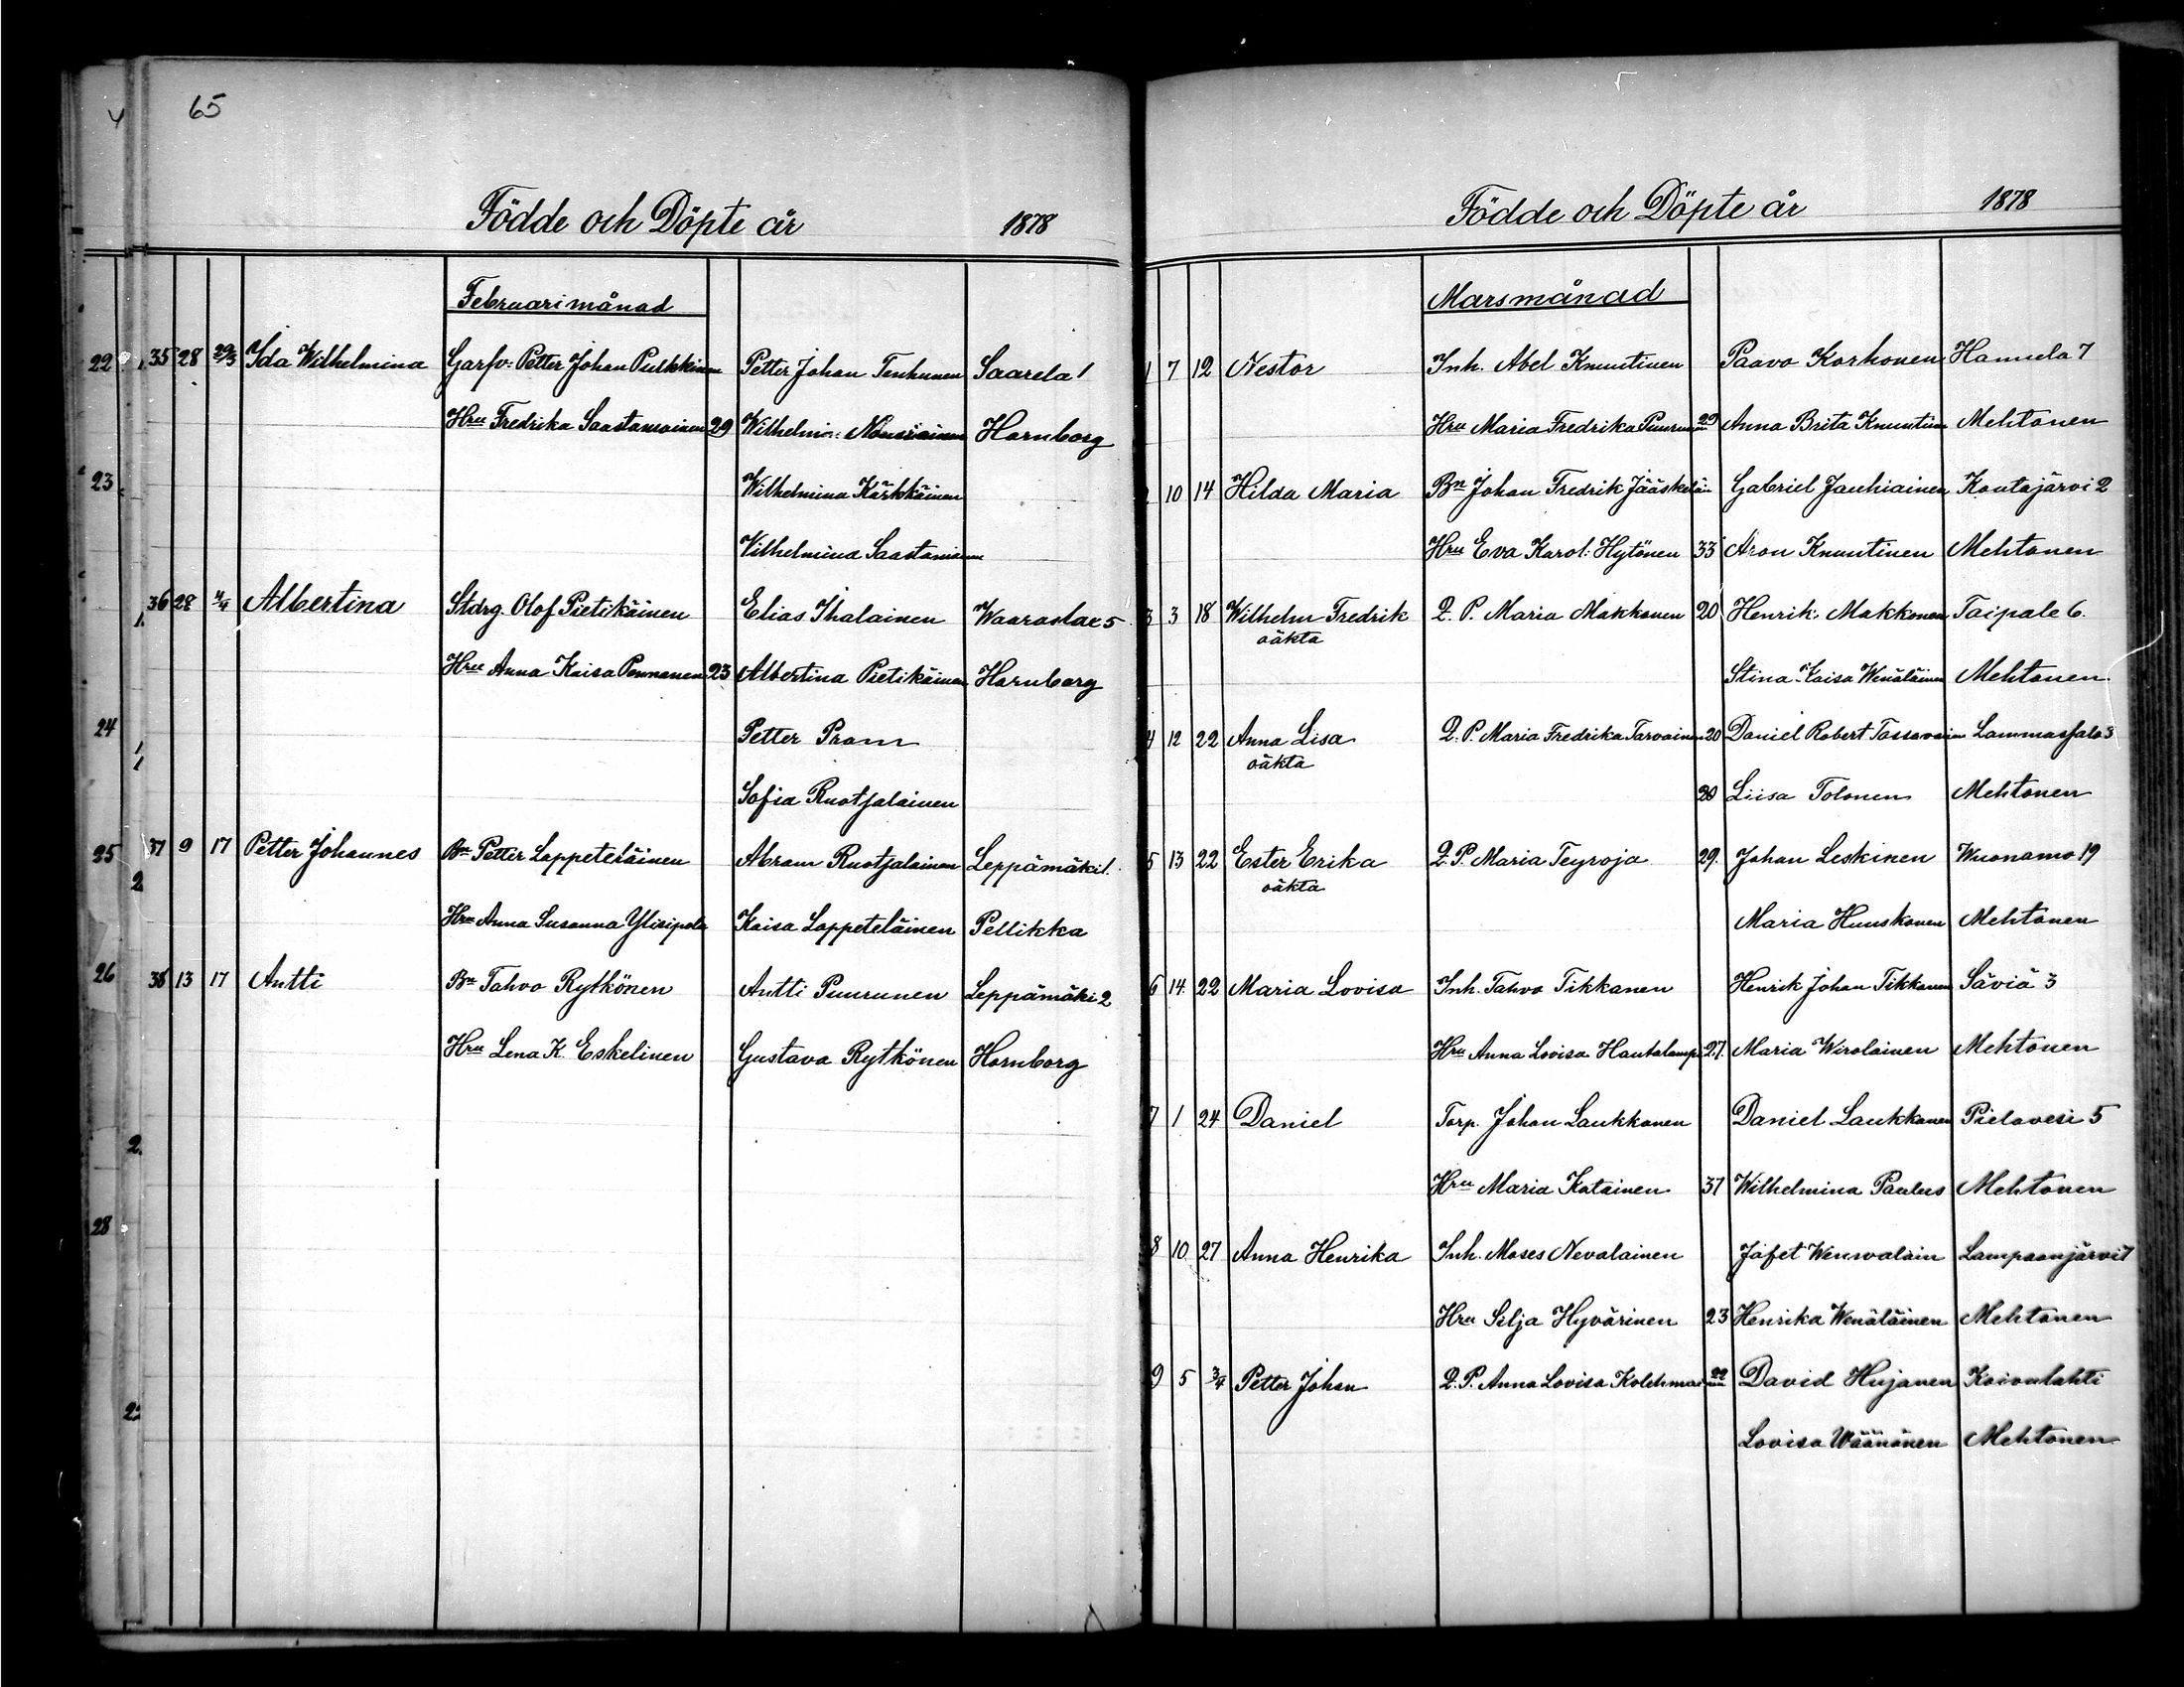 65
Födde och Döpte år 1878
Februari månad
35 28 29/3 Ida Wilhelmina Garfv: Petter Johan Pulkkinen Petter Johan Tenhunen Saarela 1
Hru Fredrika Saastamoinen 29 Wilhelmi: Nousiainen Hornborg
Wilhelmina Kärkkäinen
Vilhelmina Saastamoinen
36 28 4/4 Albertina Stdrg Olof Pietikäinen Elias Ihalainen Waaraslax 5
Hru Anna Kaisa Pennanen 23 Albertina Pietikäinen Hornborg
Petter Pram
Sofia Ruotsalainen
37 9 17 Petter Johannes Bn Petter Lappeteläinen Abram Ruotsalainen Leppämäki 1.
Hru Anna Susanna Kaisa Lappeteläinen Pellikka
38 13 17 Antti Bn Tahvo Rytkönen Antti Puurunen Leppämäki 2
Hru Lena K. Eskelinen Gustava Rytkönen Hornborg
Födde och Döpte år 1878
Marsmånad
1 7 12 Nestor Inh. Abel Knuutinen Paavo Korhonen Hamula 7
Hru Maria Fredrika Puurunen 29 Anna Brita Knuutinen Mehtonen
2 10 14 Hilda Maria Bn Johan Fredrik Jääskeläin Gabriel Jauhiainen Koutajärvi 2
Hru Eva Karol: Hytönen 33 Aron Knuutinen Mehtonen
3 3 18 Wilhelm Fredrik Q. P. Maria Makkonen 20 Henrik: Makkonen Taipale 6.
oäkta
Stina Kaisa Wenäläinen Mehtonen
4 12 22 Anna Lisa Q. P. Maria Fredrika Tarvainen 20 Daniel Robert Tossavain Lammassalo 3
oäkta
20 Liisa Tolonen Mehtonen
5 13 22 Ester Erika Q. P. Maria Teyroja 29. Johan Leskinen Wuonamo 19
oäkta
Maria Huuskonen Mehtonen
6 14 22 Maria Lovisa Inh. Tahvo Tikkanen Henrik Johan Tikkanen Säviä 3
Hru Anna Lovisa Hautalamp 27. Maria Wirolainen Mehtonen
7 1 24 Daniel Torp. Johan Laukkanen Daniel Laukkanen Pielavesi 5
Hru Maria Katainen 37 Wilhelmina Paulus Mehtonen
8 10 27 Anna Henrika Inh. Moses Nevalainen Jafet Lampaanjärvi 7
Hru Silja Hyvärinen 23 Henrika Wenäläinen Mehtonen
9 5 3/4 Petter Johan Q. P. Anna Lovisa Kolehmainen 22 David Hujanen Koivulahti
Lovisa Wäänänen Mehtonen